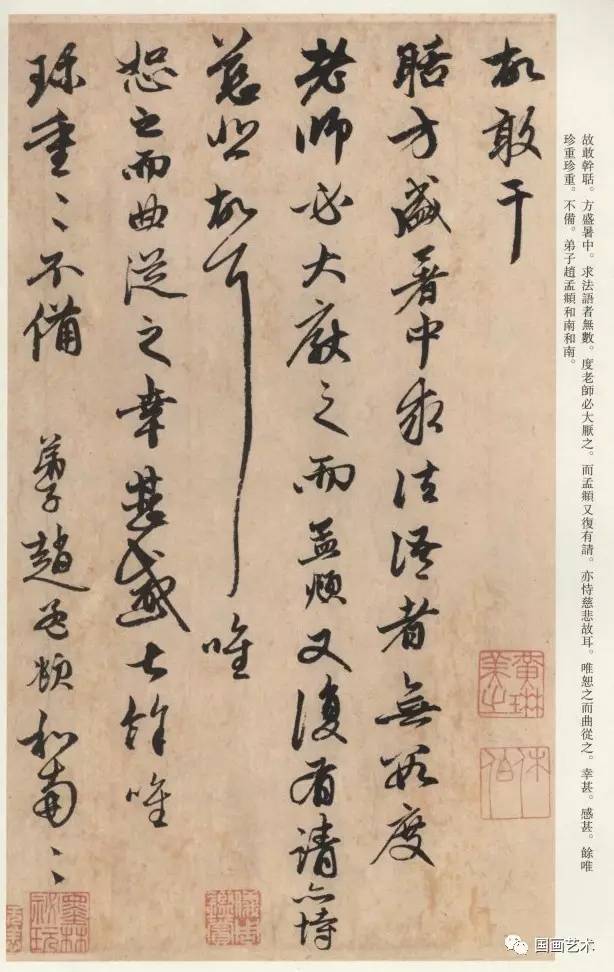 故敢幹聒。方盛暑中。求法語者無數。度老師必大厭之。而孟頫又復有請。亦恃慈悲故耳。唯恕之而曲從之。幸甚。感甚。餘唯
珍重珍重。不備。弟子趙孟頫和南和南。
故敢干
聒方盛暑中求法語者無數度
老師必大厭之而孟頫又復有請亦恃
慈悲故耳唯
恕之而曲從之幸甚感甚餘唯
珍重〻不備 弟子趙孟頫和南〻
黃琳美之
休伯
墨林祕玩
国画艺术